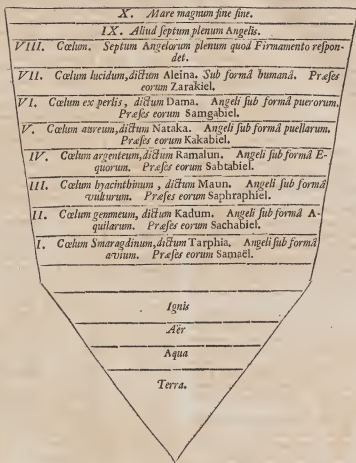 X. Mare magnum sine fine.
IX. Aliud septum plenum Angelis.
VIII. Cœlum. Septum Angelorum plenum quod Firmamento respon-
det.
VII. Cœlum lucidum, dictum Aleina. Sub formâ humanâ. Præses
eorum Zarakiel.
VI. Cœlum ex perlis, dictum Dama. Angeli sub formâ puerorum.
Præses eorum Samgabiel.
V. Cœlum aureum, dictum Nataka. Angeli sub formâ puellarum.
Præses eorum Kakabiel.
IV. Cœlum argenteum, dictum Ramalun. Angeli sub formâ E-
quorum. Præses eorum Sabtabiel.
III. Cœlum hyacinthinum, dictum Maun. Angeli sub formâ
vulturum. Præses eorum Saphraphiel.
II. Cœlum gemmeum, dictum Kadum. Angeli sub formâ A-
quilarum. Præses eorum Sachabiel.
I. Cœlum Smaragdinum, dictum Tarphia. Angeli sub formâ
avium. Præses eorum Samaël.
Ignis
Aër
Aqua
Terra.